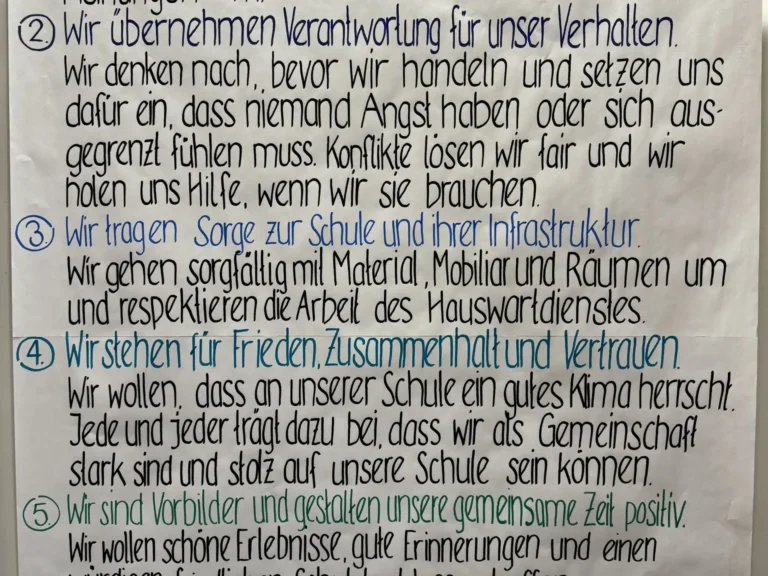 ② Wir übernehmen Verantwortung für unser Verhalten.
Wir denken nach, bevor wir handeln und setzen uns
dafür ein, dass niemand Angst haben oder sich aus-
gegrenzt fühlen muss. Konflikte lösen wir fair und wir
holen uns Hilfe, wenn wir sie brauchen.
③ Wir tragen Sorge zur Schule und ihrer Infrastruktur.
Wir gehen sorgfältig mit Material, Mobiliar und Räumen um
und respektieren die Arbeit des Hauswartdienstes.
④ Wir stehen für Frieden, Zusammenhalt und Vertrauen.
Wir wollen, dass an unserer Schule ein gutes Klima herrscht.
Jede und jeder trägt dazu bei, dass wir als Gemeinschaft
stark sind und stolz auf unsere Schule sein können.
⑤ Wir sind Vorbilder und gestalten unsere gemeinsame Zeit positiv.
Wir wollen schöne Erlebnisse, gute Erinnerungen und einen